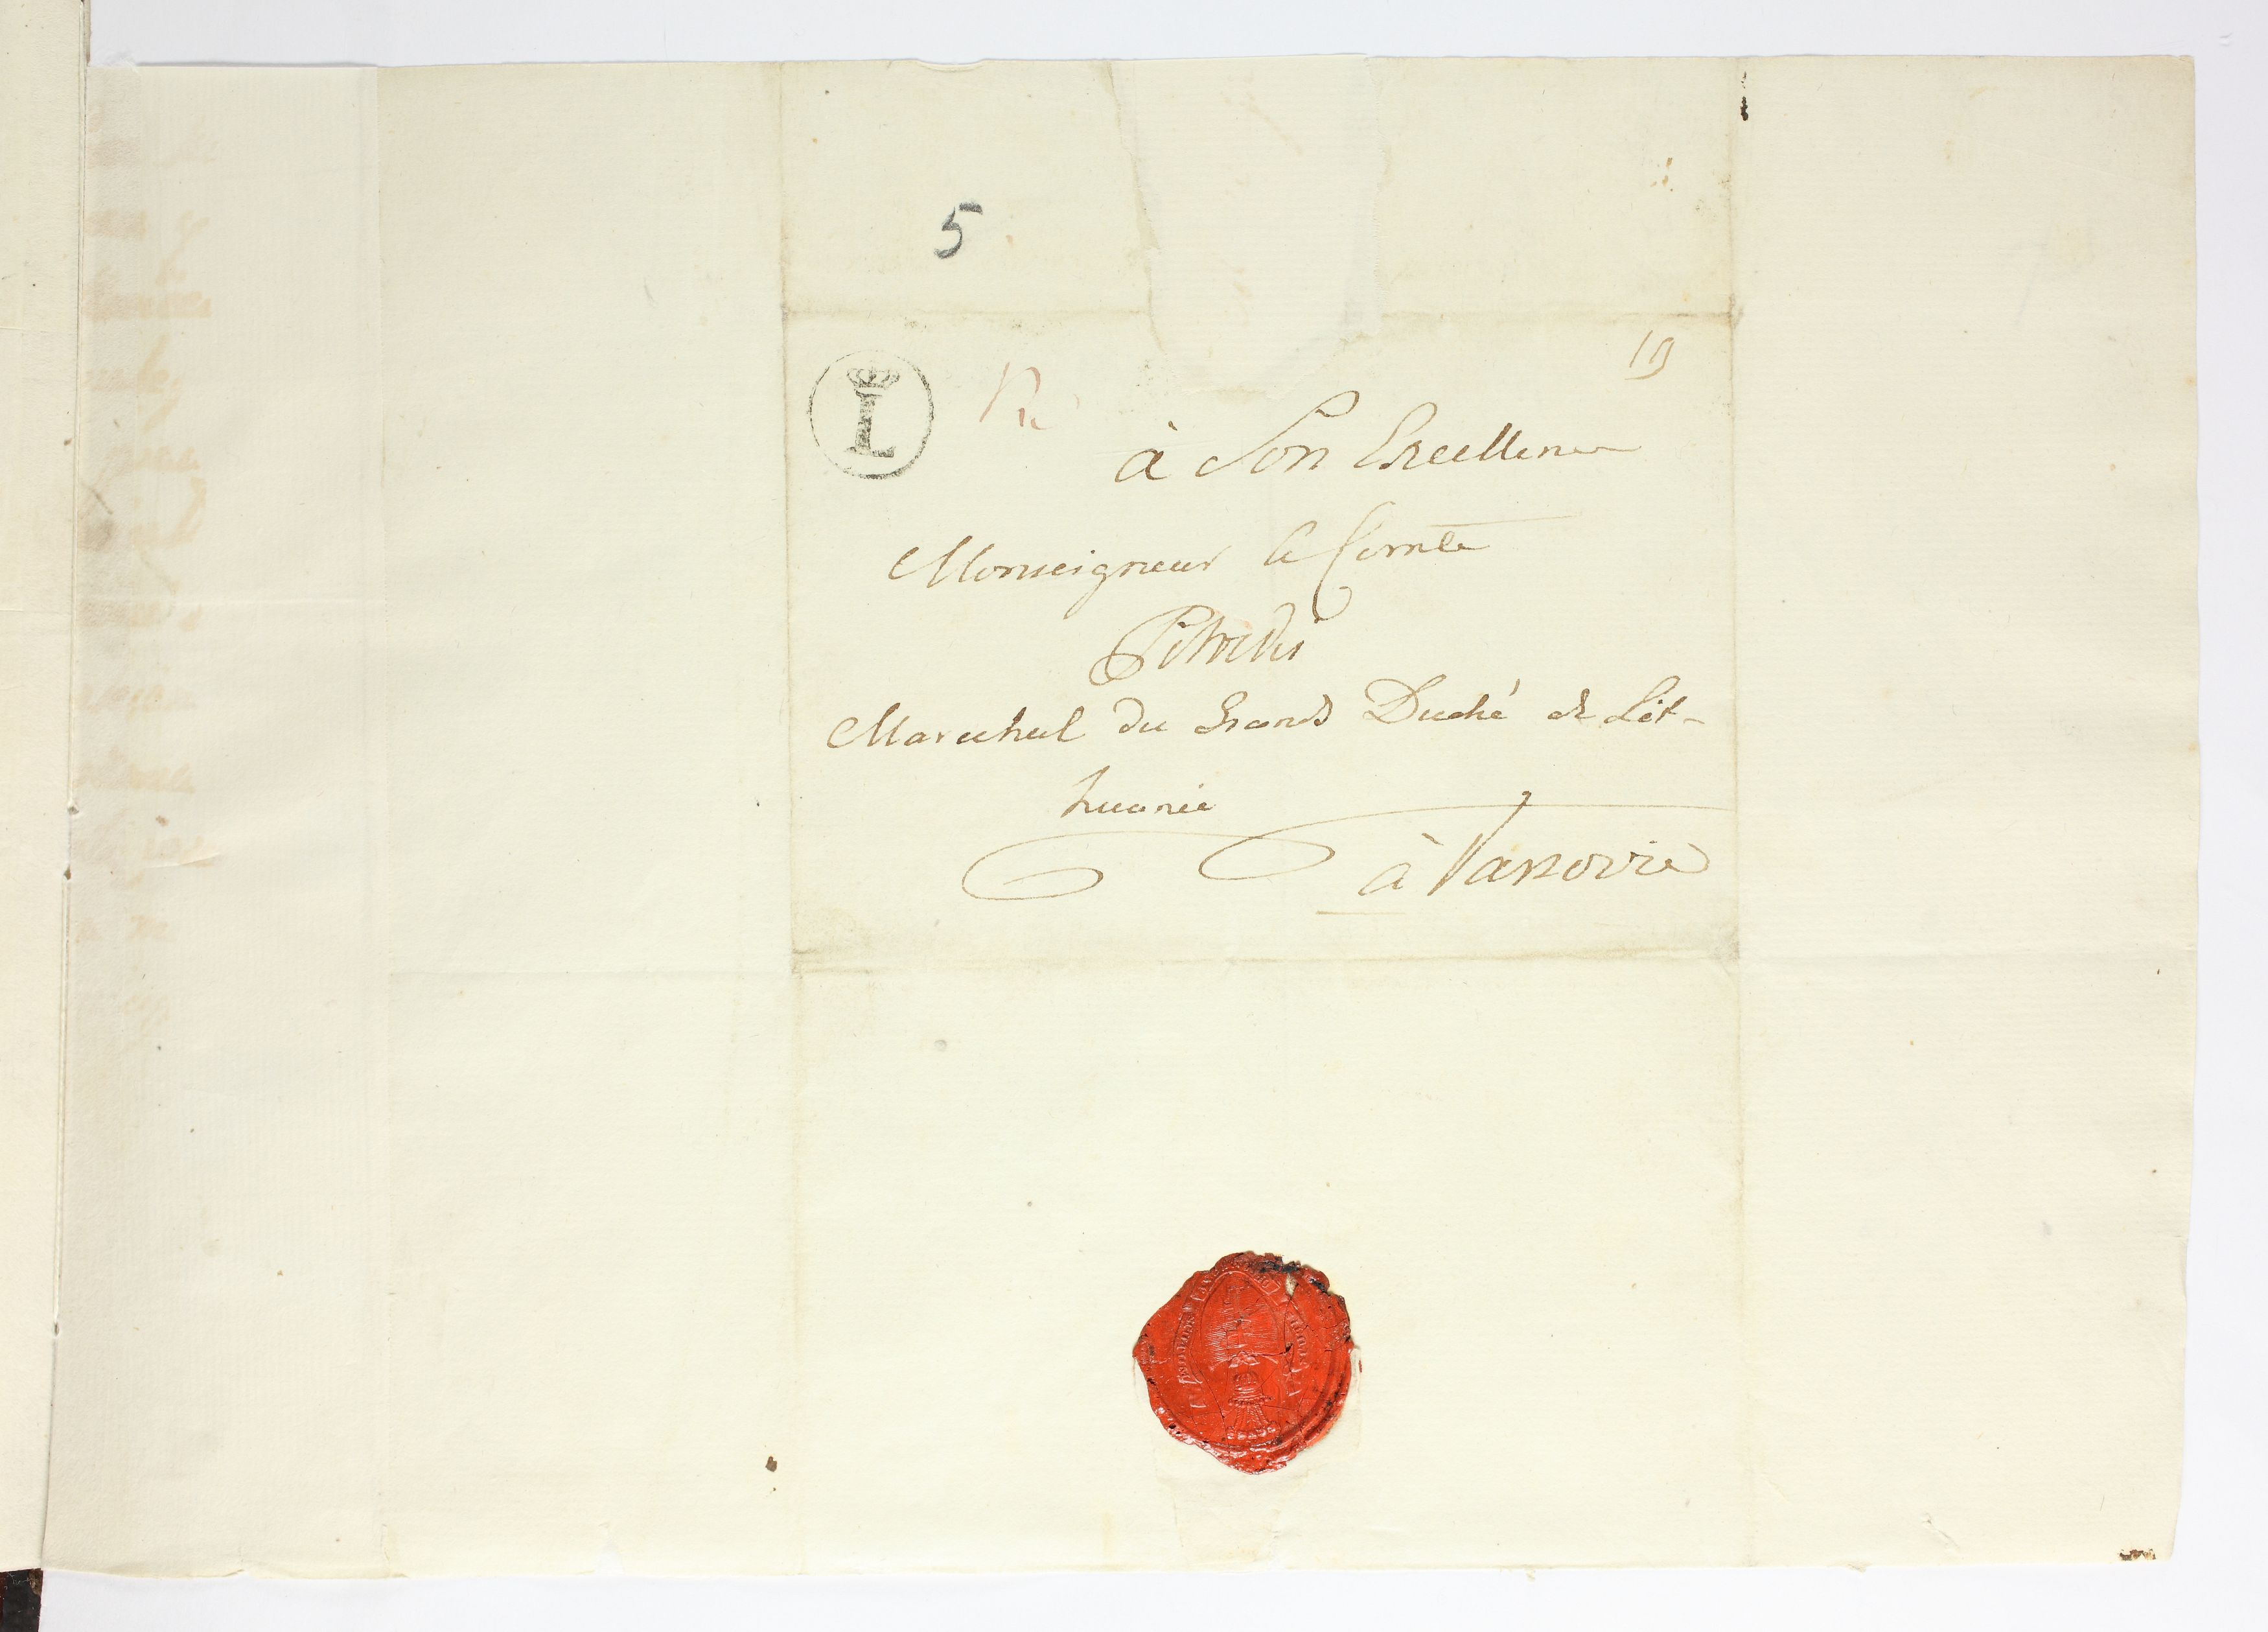 5
L
19
à Son Excellence
Monseigneur le Comte
Potocki
Marechal du Grand Duché de Lit-
huanie
à Varsovie